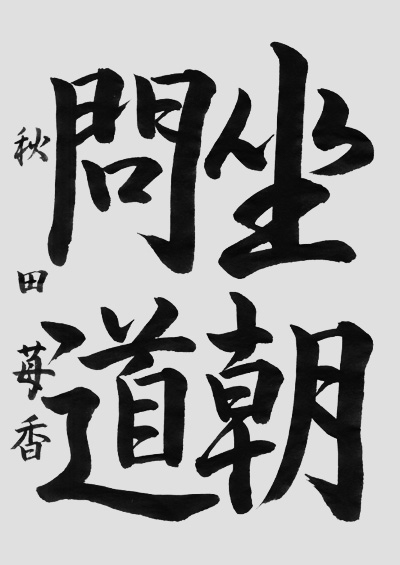 坐朝
問道
秋田苺香